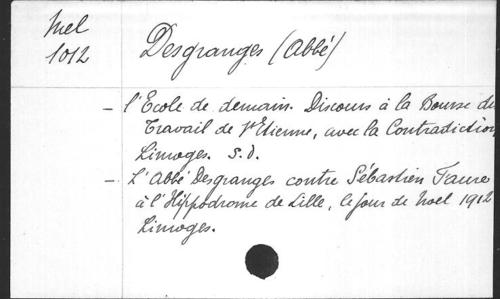 Mel
1012
Desgranges (Abbé)
- l'Ecole de demain. Discours à la Bourse du
Travail de St Etienne, avec la Contradiction
Limoges. s.d.
- L'Abbé Desgranges contre Sébastien Faure
à l'Hippodrome de Lille, le jour de Noel 1912
Limoges.